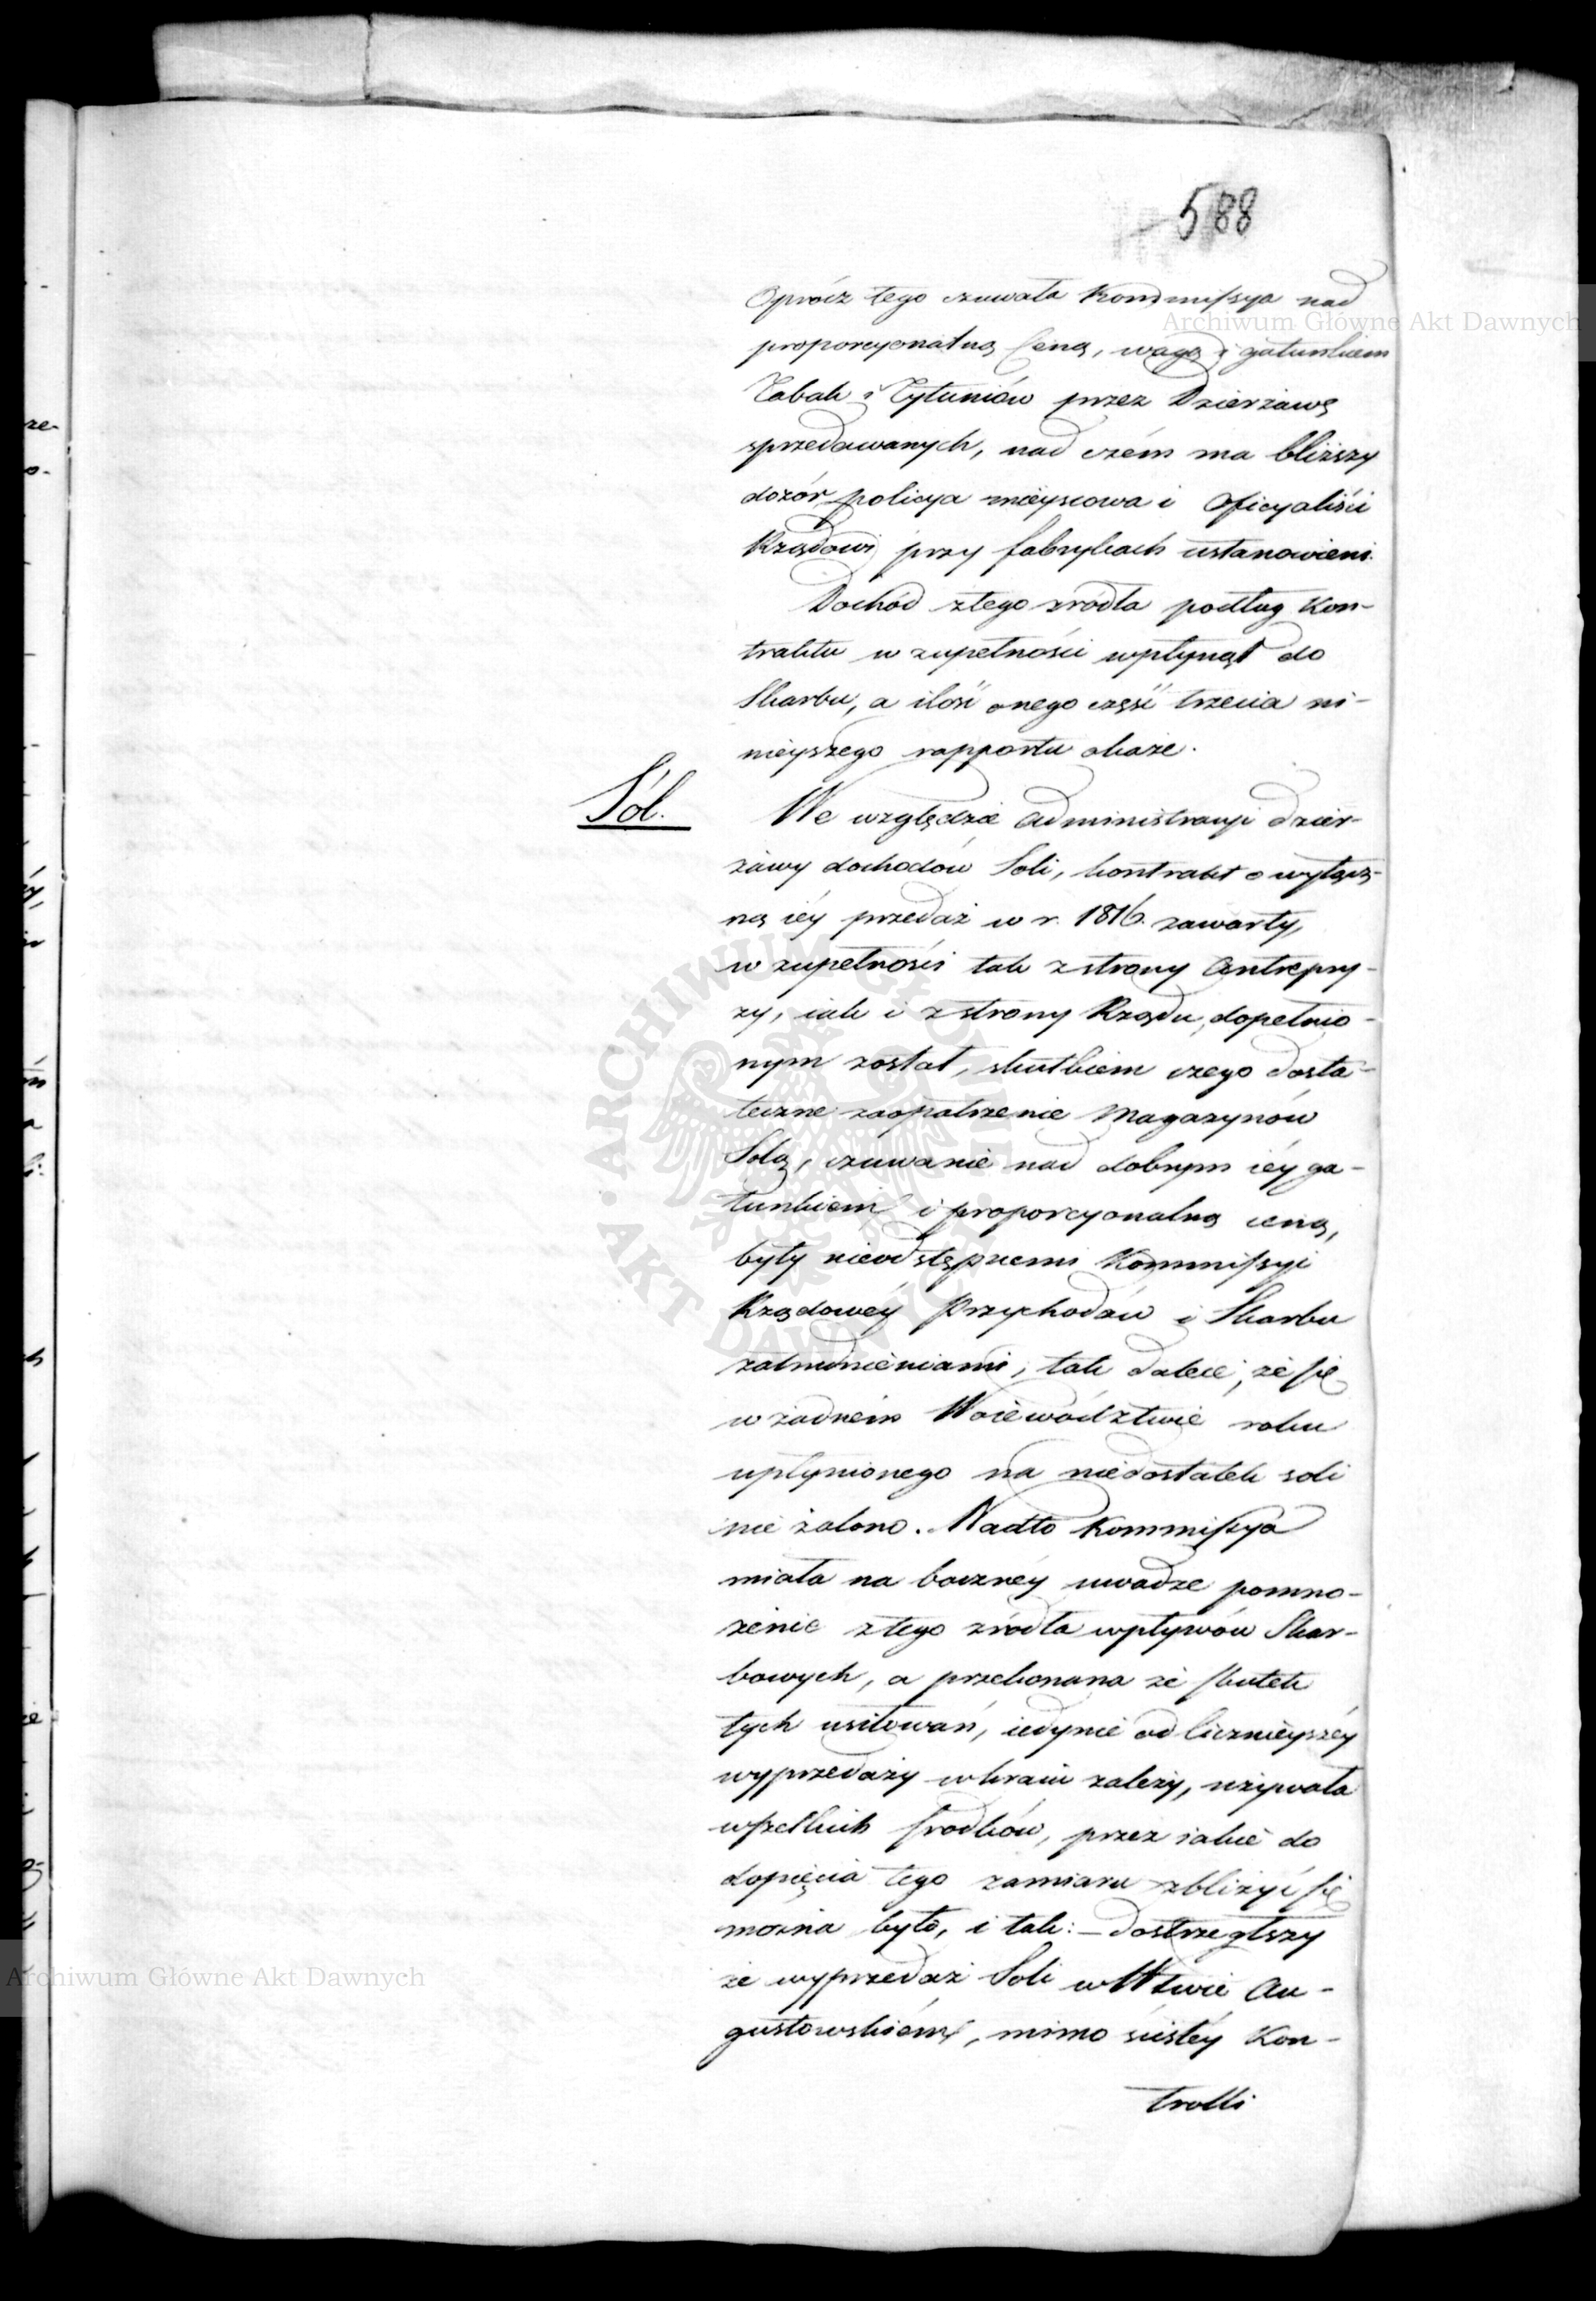 588
Oprócz tego czuwała Kommissya nad
proporcyonalną Ceną, wagą i gatunkiem
Tabak i Tytuniów przez Dzierżawę
sprzedawanych, nad czém ma bliższy
dozór policya mieyscowa i Oficyaliści
Rządowi przy fabrykach ustanowieni.
Dochód z tego źródła podług Kon-
traktu w zupełności wpłynął do
Skarbu, a ilość onego część trzecia ni-
nieyszego rapportu okaże.
Sól.
We względzie Administracyi dzier-
żawy dochodów Soli, kontrakt o wyłącz-
ną iéy przedaż w r. 1816. zawarty,
w zupełności tak z strony Antrepry-
zy, iak i z strony Rządu, dopełnio-
nym został, skutkiem czego dosta-
teczne zaopatrzenie Magazynów
Solą, czuwanie nad dobrym iéy ga-
tunkiem i proporcyonalną ceną,
były nieodstępnemi Kommissyi
Rządowéy Przychodów i Skarbu
zatrudnieniami, tak dalece, że się
w żadném Woiewództwie roku
upłynionego na niedostatek soli
nie żalono. Nadto Kommissya
miała na baczney uwadze pomno-
żenie z tego źródła wpływów Skar-
bowych, a przekonana że skutek
tych usiłowań, iedynie od licznieyszéy
wyprzedaży w kraiu zależy, używała
wszelkich środków, przez iakie do
dopięcia tego zamiaru zbliżyć się
można było, i tak: – dostrzegłszy
że wyprzedaż Soli w Wtwie Au-
gustowskiém, mimo ścisłéy Kon-
trolli
Archiwum Główne Akt Dawnych
Archiwum Główne Akt Dawnych
ARCHIWUM GŁÓWNE · AKT DAWNYCH ·